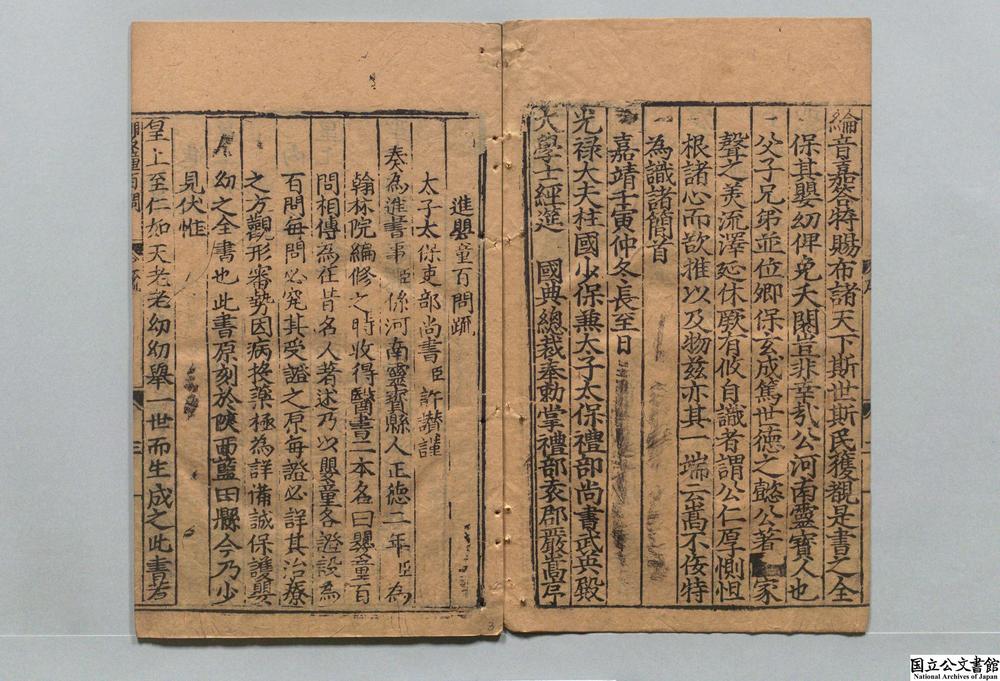 綸音嘉荅特賜布諸天下斯世斯民獲覩是書之全
保其嬰幼俾免夭閼豈非幸哉公河南靈寶人也
父子兄弟並位卿保玄成篤世德之懿公著家
聲之美流澤延休厥有攸自識者謂公仁厚惻怛
根諸心而欲推以及物兹亦其一端云嵩不佞特
為識諸簡首
嘉靖壬寅仲冬長至日
光祿大夫柱國少保兼太子太保禮部尚書武英殿
大學士經筵 國典總裁奉勅掌禮部袁郡嚴嵩序
進嬰童百問疏
太子太保吏部尚書臣許讃謹
奏為進書事臣係河南靈寶縣人正德二年臣為
翰林院編修之時收得醫書二本名曰嬰童百
問相傳為在昔名人著述乃以嬰童各證設為
百問每問必究其受證之原每證必詳其治療
之方觀形審勢因病換藥極為詳備誠保護嬰
幼之全書也此書原刻於陝西藍田縣今乃少
見伏惟
皇上至仁如天老老幼幼舉一世而生成之此書若
嬰童百問
三
3
国立公文書館
National Archives of Japan